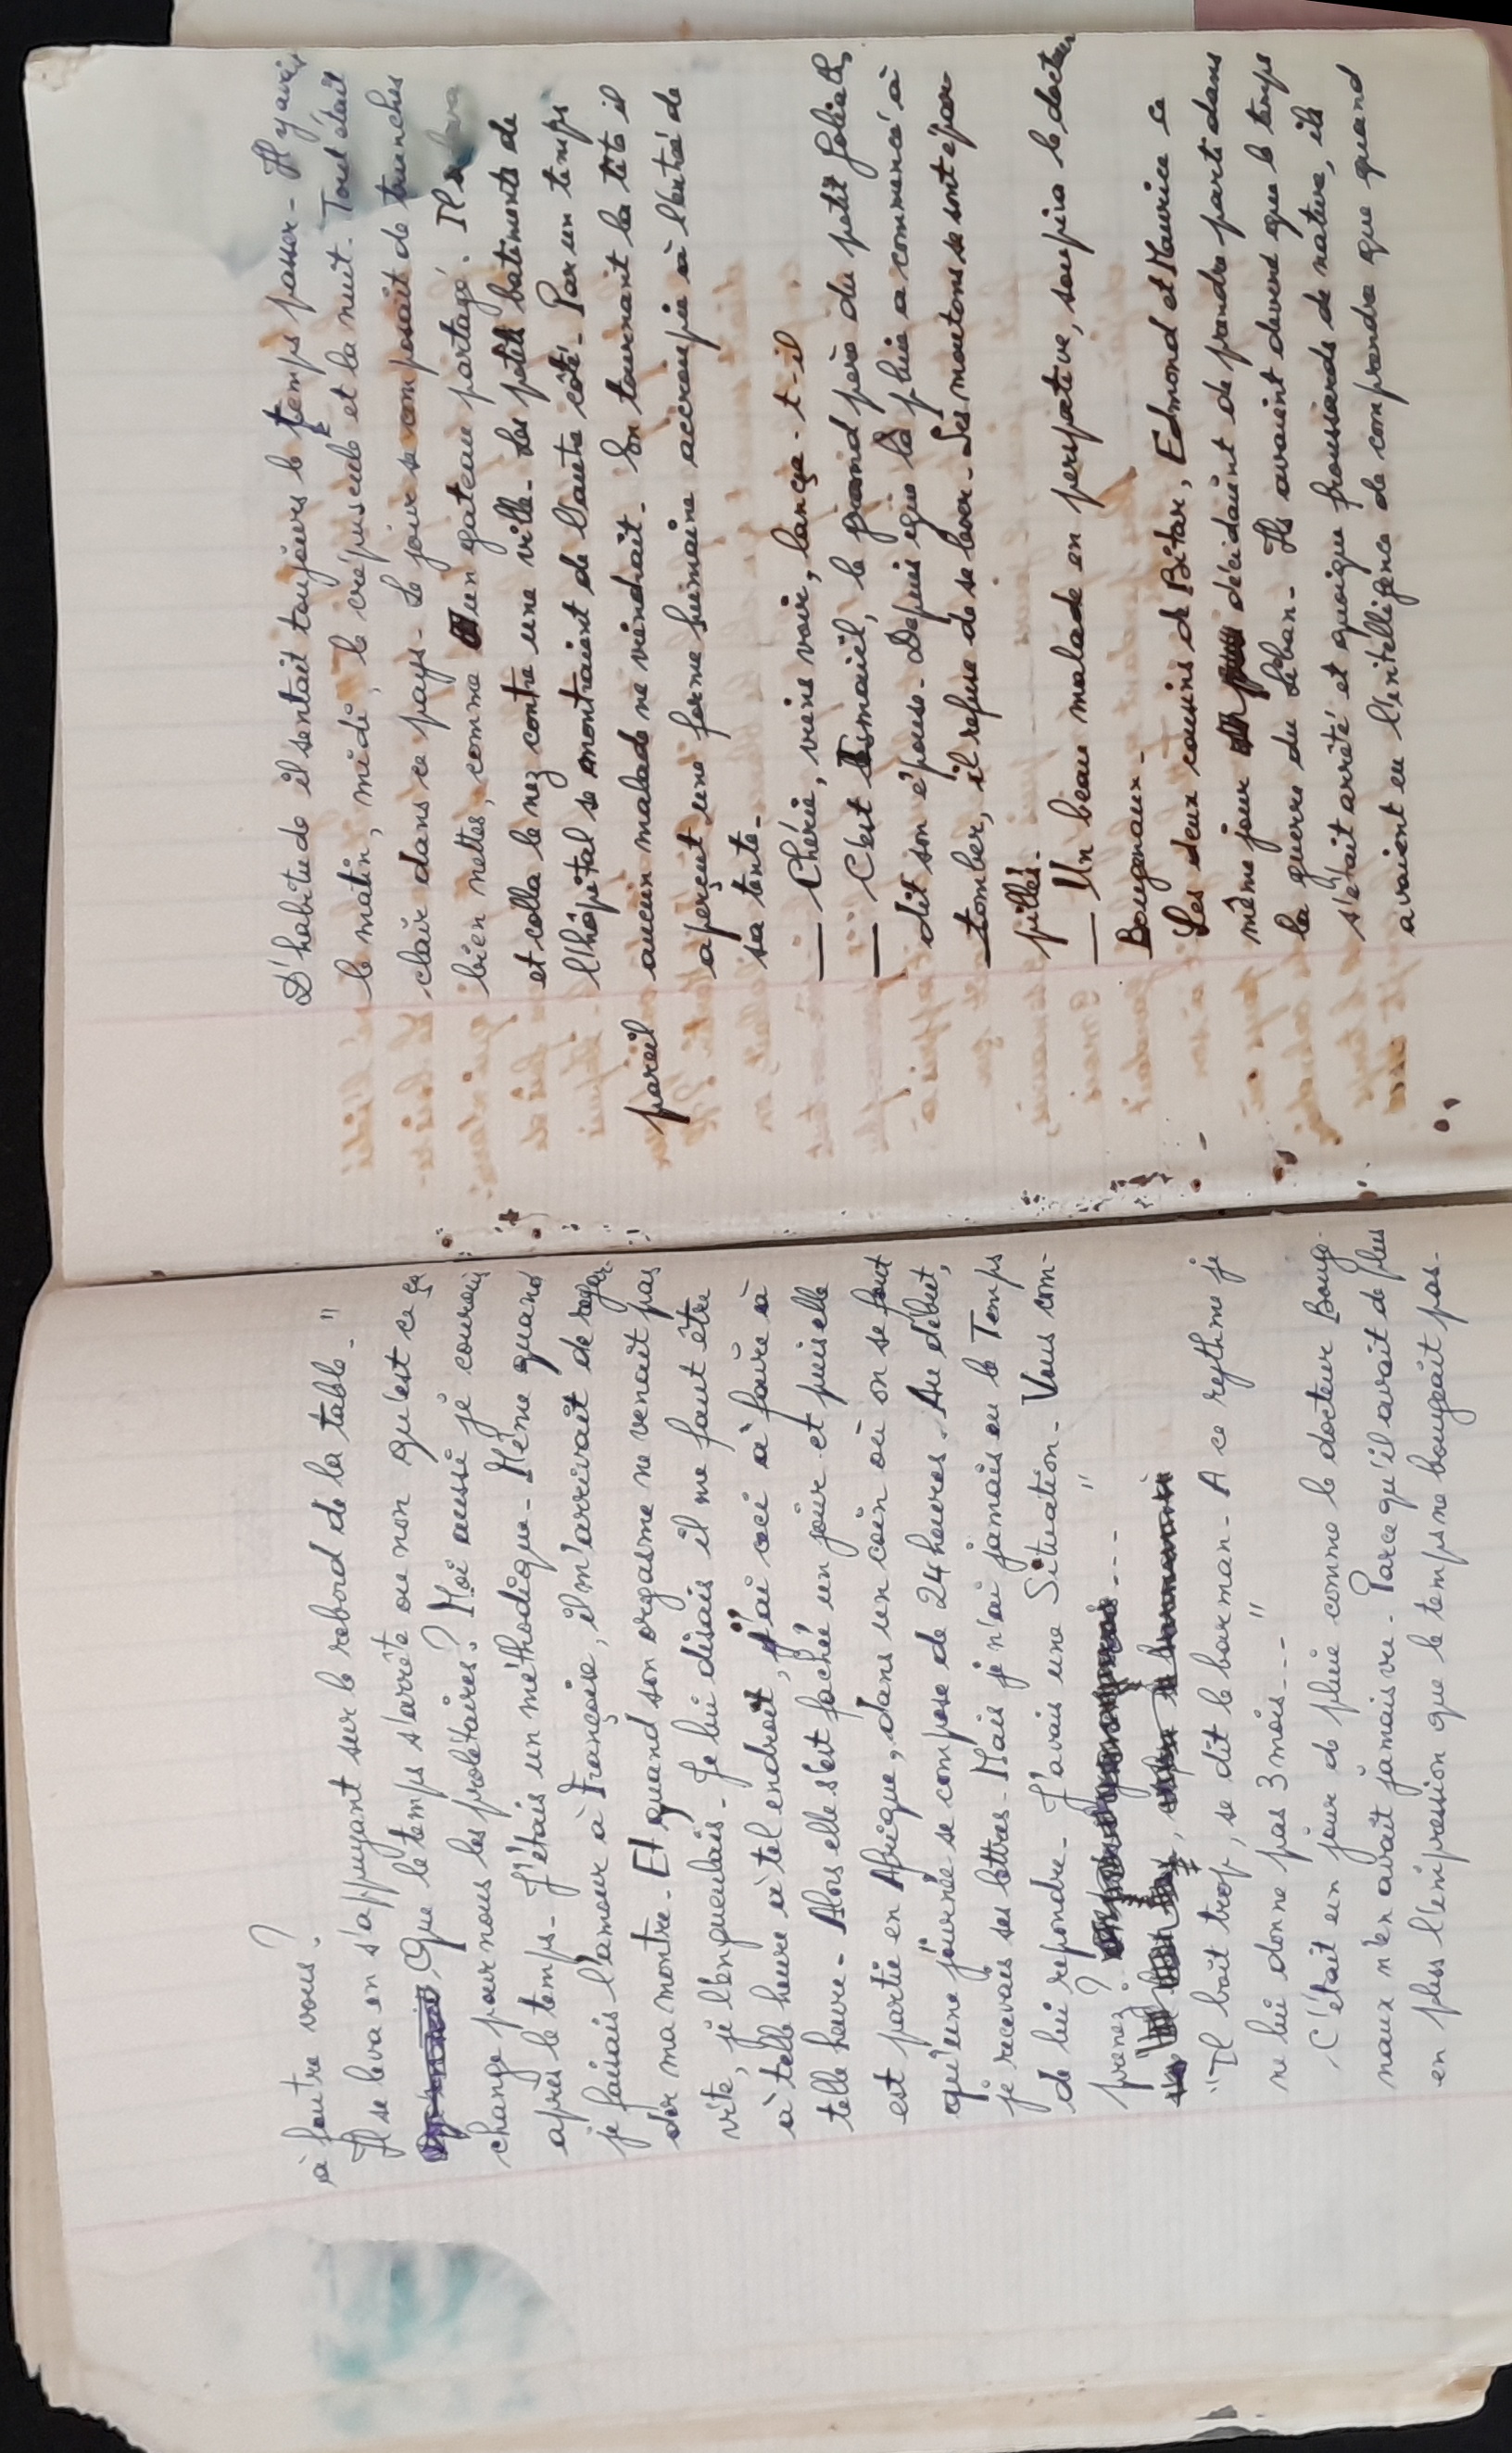 à foutre vous ?
Il se leva en s'appuyant sur le rebord de la table - "
Que le temps s'arrête ou non qu'est ce ça
change pour nous les prolétaires ? Moi aussi je courais
après le temps - J'étais un méthodique - Même quand
je faisais l'amour à Françoise, il m'arrivait de regar-
der ma montre - Et quand son orgasme ne venait pas
vite, je l'engueulais - Je lui disais il me faut être
à telle heure à tel endroit, j'ai ceci à faire à
telle heure - Alors elle s'est fachée un jour et puis elle
est partie en Afrique, dans un coin où on se fout
qu'une journée se compose de 24 heures. Au début,
je recevais ses lettres - Mais je n'ai jamais eu le Temps
de lui repondre - J'avais une Situation - Vous com-
prenez ? "
"Il boit trop, se dit le barman - A ce rythme je
ne lui donne pas 3 mois --- "
C'était un jour de pluie comme le docteur Bougo-
naux n'en avait jamais vu - Parce qu'il avait de plus
en plus l'impression que le temps ne bougeait pas -
D'habitude il sentait toujours le temps passer - Il y avait
le matin, midi, le crépuscule et la nuit. Tout était
clair dans ce pays - Le jour se composait de tranches
bien nettes, comme un gateau partagé. Il
et colla le nez contre une ville - Les petits batiments de
l'hôpital se montraient de l'autre côté - Par un temps
pareil aucun malade ne viendrait - En tournant la tête il
aperçut une forme humaine accroupie à l'entrée de
sa tente -
— Chérie, viens voir, lança-t-il
— C'est Ismaïel, le grand père du petit Goliath,
dit son épouse - Depuis que la pluie a commencé à
tomber, il refuse de se lever - Les moutons se sont épar
pillés -
— Un beau malade en perspective, soupira le docteur
Bougonaux -
Les deux cousins de Bitar, Edmond et Maurice ce
même jour décidaient de prendre parti dans
la guerre du Liban - Ils avaient devené que le temps
s'était arrêté et quoique froussards de nature, ils
avaient eu l'intelligence de comprendre que quand